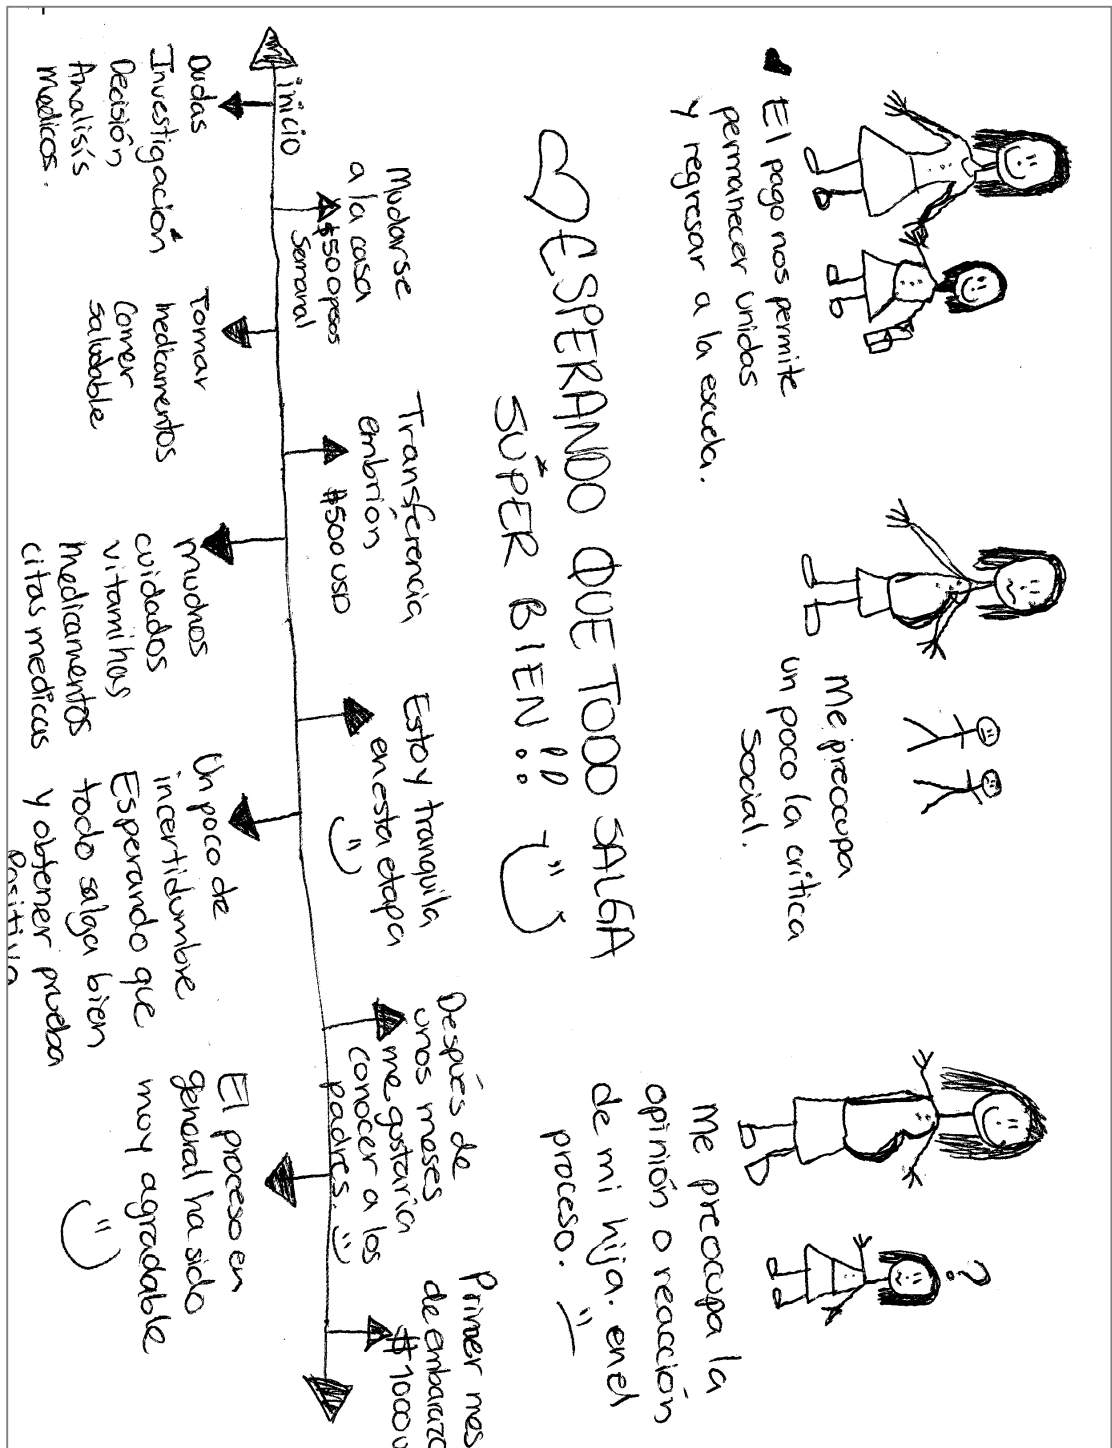 El pago nos permite
permanecer unidas
y regresar a la escuela.
Me preocupa
un poco la crítica
social.
Me preocupa la
opinión o reacción
de mi hija. en el
proceso.
?
ESPERANDO QUE TODO SALGA
SÚPER BIEN!!
inicio
Mudarse
a la casa
$500 pesos
Semanal
Transferencia
embrión
$500 USD
Estoy tranquila
en esta etapa
Después de
unos meses
me gustaría
conocer a los
padres.
Primer mes
de embarazo
$1000
Dudas
Investigación
Decisión
Analisis
Medicos.
Tomar
medicamentos
Comer
saludable
muchos
cuidados
vitaminas
medicamentos
citas medicas
Un poco de
incertidumbre
Esperando que
todo salga bien
y obtener prueba
Positiva
El proceso en
general ha sido
muy agradable